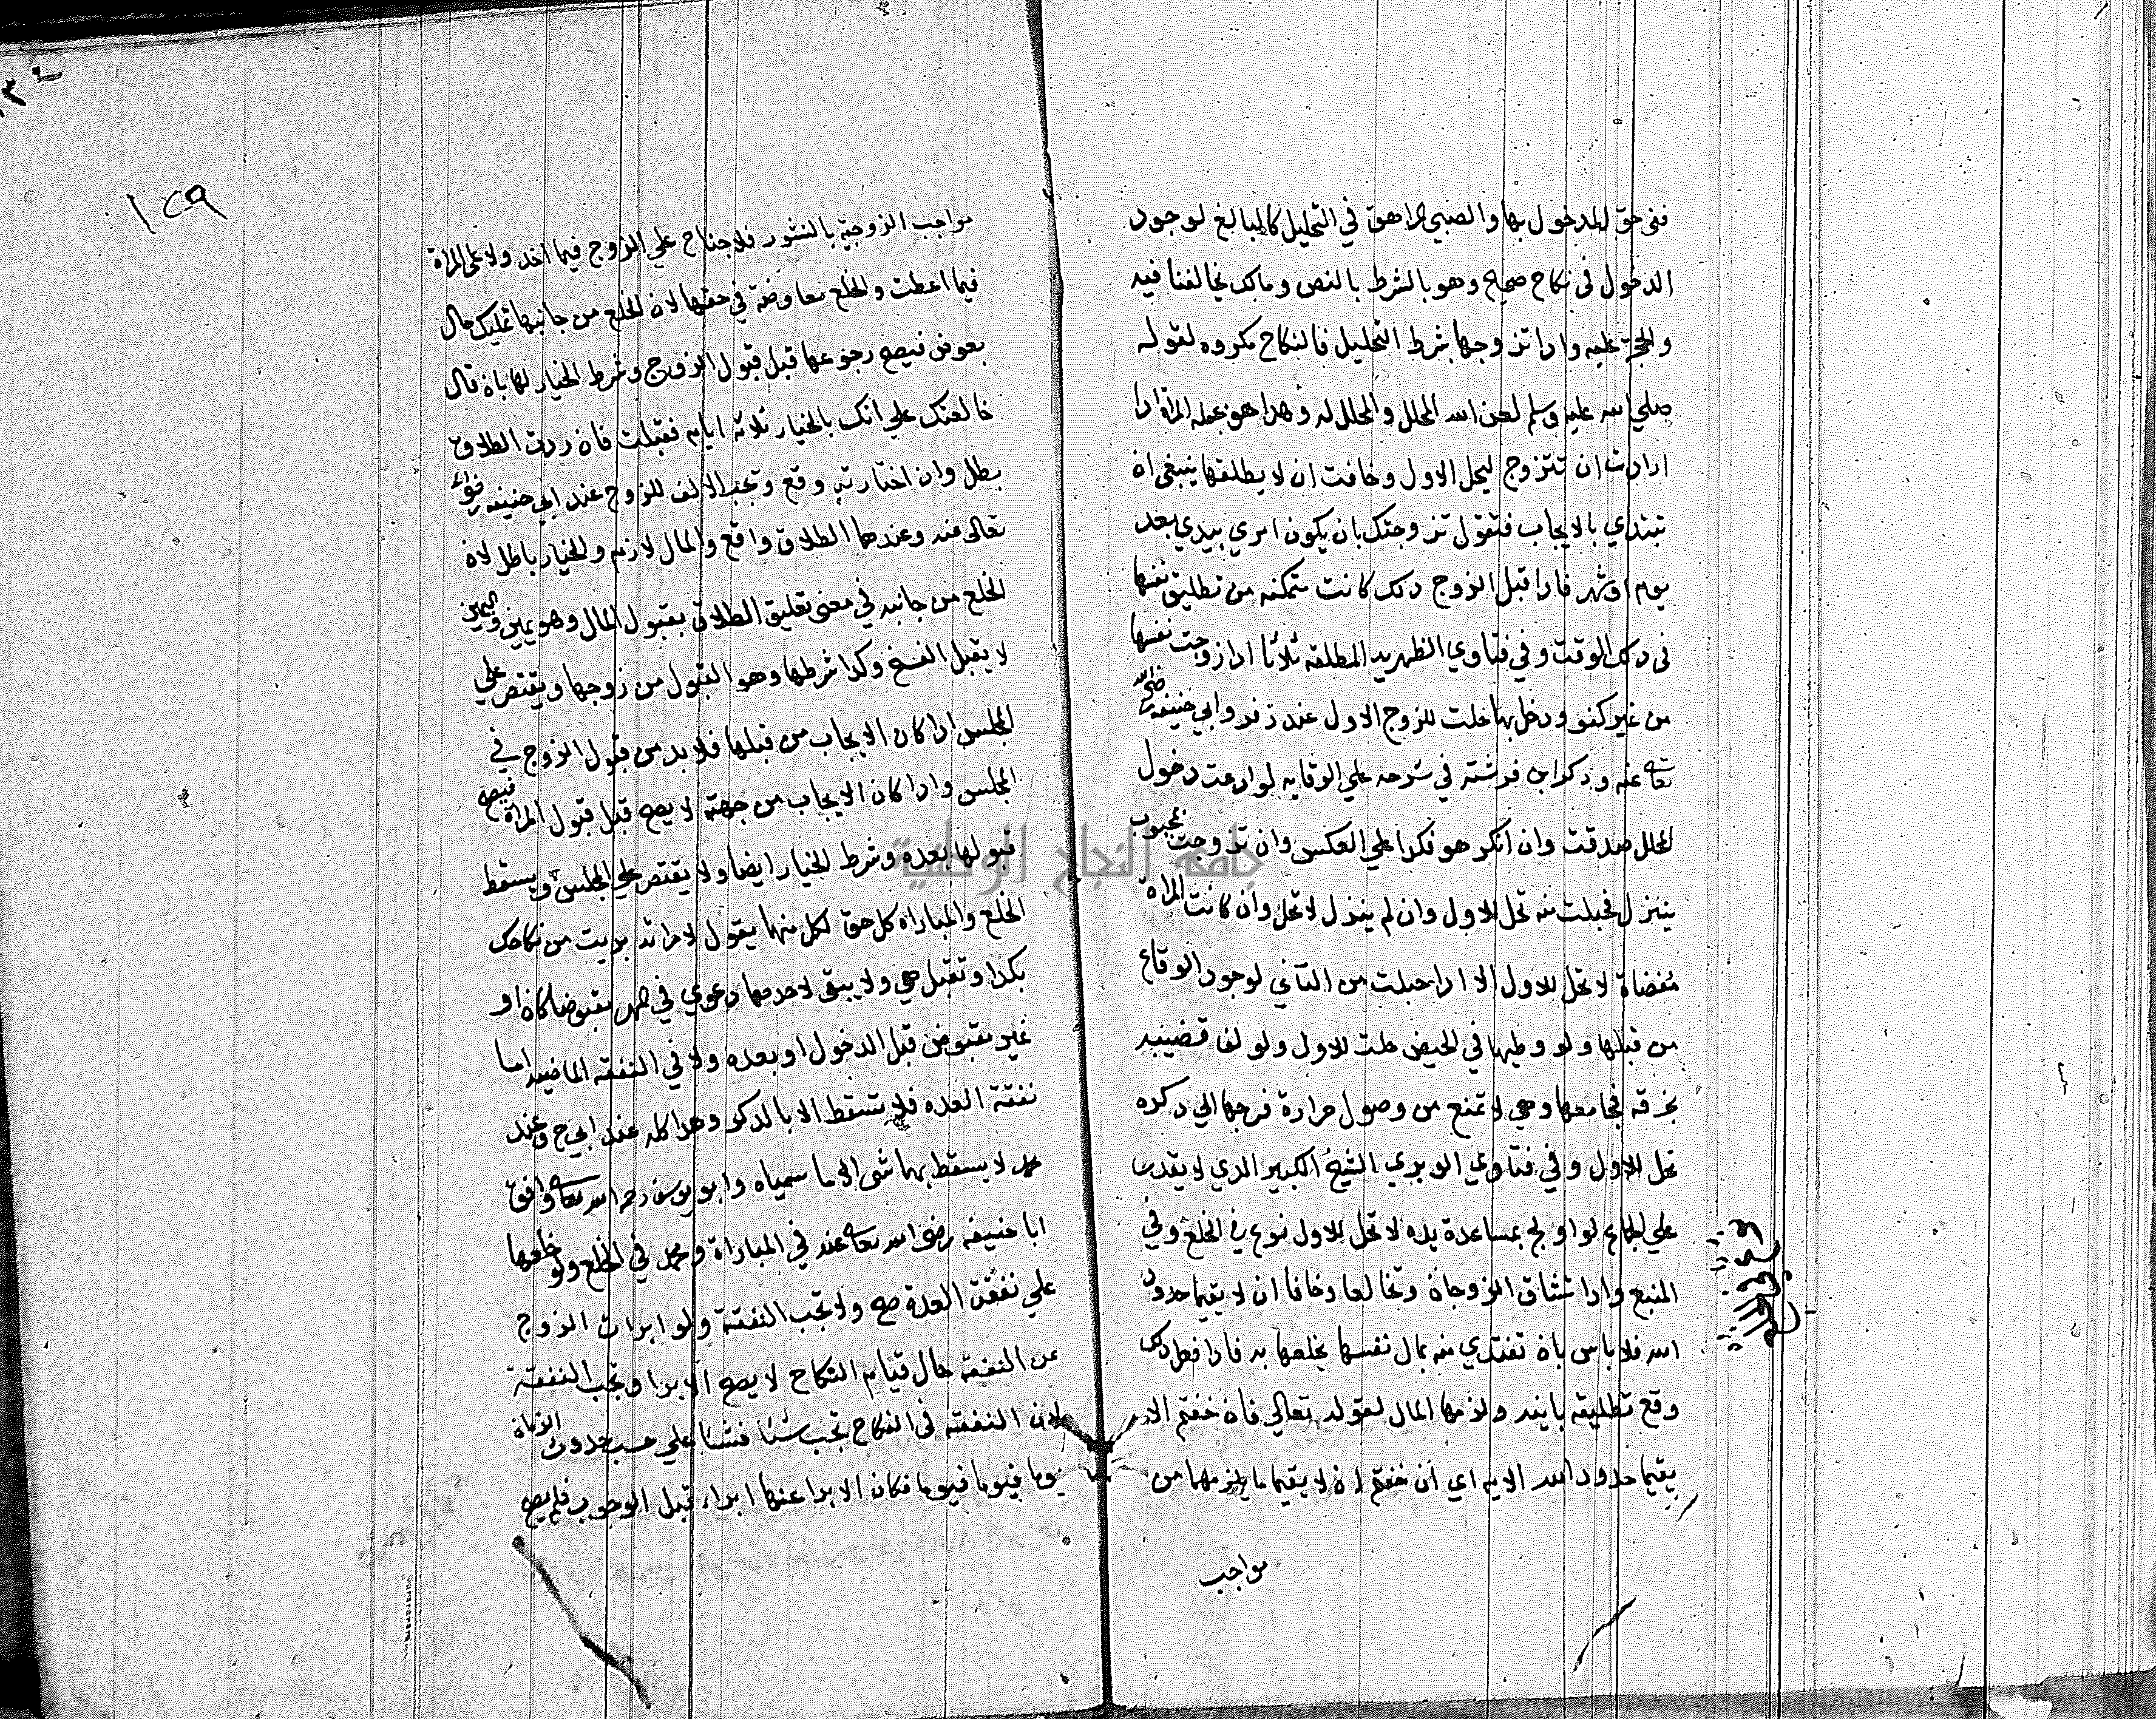 ففي حق المدخول بها والصبي المراهق في التحليل كالبالغ لوجود
الدخول في نكاح صحيح وهو الشرط بالنص ومالك يخالفنا فيه
والحجة عليه واذا تزوجها بشرط التحليل فالنكاح مكروه لقوله
صلي الله عليه وسلم لعن الله المحلل والمحلل له وهذا هو محمله المراة اذا
ارادت ان تتزوج ليحل الاول وخافت ان لا يطلقها ينبغي ان
تبتدي بالايجاب فتقول تزوجتك بان يكون امري بيدي بعد
يوم او شهر فاذا قبل الزوج ذلك كانت متمكنه من تطليق نفسها
في ذلك الوقت وفي فتاوي الظهريه المطلقه ثلاثا اذا زوجت نفسها
من غير كفو ودخل بها حلت للزوج الاول عند زفر وابي حنيفه رضي الله
تعالى عنه وذكر ابن فرشته في شرحه علي الوقايه لو ادعت دخول
المحلل صدقت وان انكر هو فكذا علي العكس وان تزوجت بمجبوب
ينزل فحبلت منه تحل للاول وان لم ينزل لا تحل وان كانت المراة
مفضاة لا تحل للاول الا اذا حبلت من الثاني لوجود الوقاع
من قبلها ولو وطيها في الحيض حلت للاول ولو لف قضيبه
بخرقه فجامعها وهي لا تمنع من وصول حرارة فرجها الي ذكره
تحل للاول وفي فتاوي الوبري الشيخ الكبير الذي لا يقدر
علي الجماع لو اولج بمساعدة يده لا تحل للاول نوع في الخلع وفي
المنبع واذا تشاق الزوجان وتخالعا وخافا ان لا يقيما حدود
الله فلا باس بان تفتدي منه بمال نفسها يخلعها به فاذا فعل ذلك
وقع تطليقه باينه ولزمها المال لقوله تعالي فان خفتم الا
يقيما حدود الله الايه اي ان خفتم ان لا يقيما ما يلزمهما من
مواجب
١٢٩
مواجب الزوجية بالنشوز فلا جناح علي الزوج فيما اخذ ولا على المراة
فيما اعطت والخلع معاوضة في حقها لان الخلع من جانبها تمليك مال
بعوض فيصح رجوعها قبل قبول الزوج وشرط الخيار لها بان قال
خالعتك علي انك بالخيار ثلاثه ايام فقبلت فان ردت الطلاق
بطل وان اختارته وقع وتجب الالف للزوج عند ابي حنيفه رضي الله
تعالى عنه وعندهما الطلاق واقع والمال لازم والخيار باطل لان
الخلع من جانبه في معنى تعليق الطلاق بقبول المال وهو يمين واليمين
لا يقبل الفسخ وكذا شرطها وهو القبول من زوجها ويقتصر علي
المجلس اذا كان الايجاب من قبلها فلا بد من قبول الزوج في
المجلس واذا كان الايجاب من جهته لا يصح قبل قبول المراة فيصح
قبولها بعده وشرط الخيار ايضا ولا يقتصر علي المجلس ويسقط
الخلع والمباراة كل حق لكل منهما يقول لامراته بريت من نكاحك
بكذا وتقبل هي ولا يبقى لاحدهما دعوي في مهر مقبوضا كان او
غير مقبوض قبل الدخول او بعده ولا في النفقه الماضيه اما
نفقة العده فلا تسقط الا بالذكر وهذا كله عند ابي ح وعند
محمد لا يسقط بهما شي الا ما سمياه وابو يوسف رحمه الله تعالى وافق
ابا حنيفه رضى الله تعالى عنه في المباراة ومحمد في الخلع ولو خلعها
علي نفقة العدة صح ولا تجب النفقة ولو ابرات الزوج
عن النفقه حال قيام النكاح لا يصح الابرا وتجب النفقة
لان النفقه في النكاح تجب شيا فشيا علي حسب حدوث الزمان
يوما فيوما فيوما فكان الابرا عنها ابراء قبل الوجوب فلم يصح
جامعة النجاح الوطنية